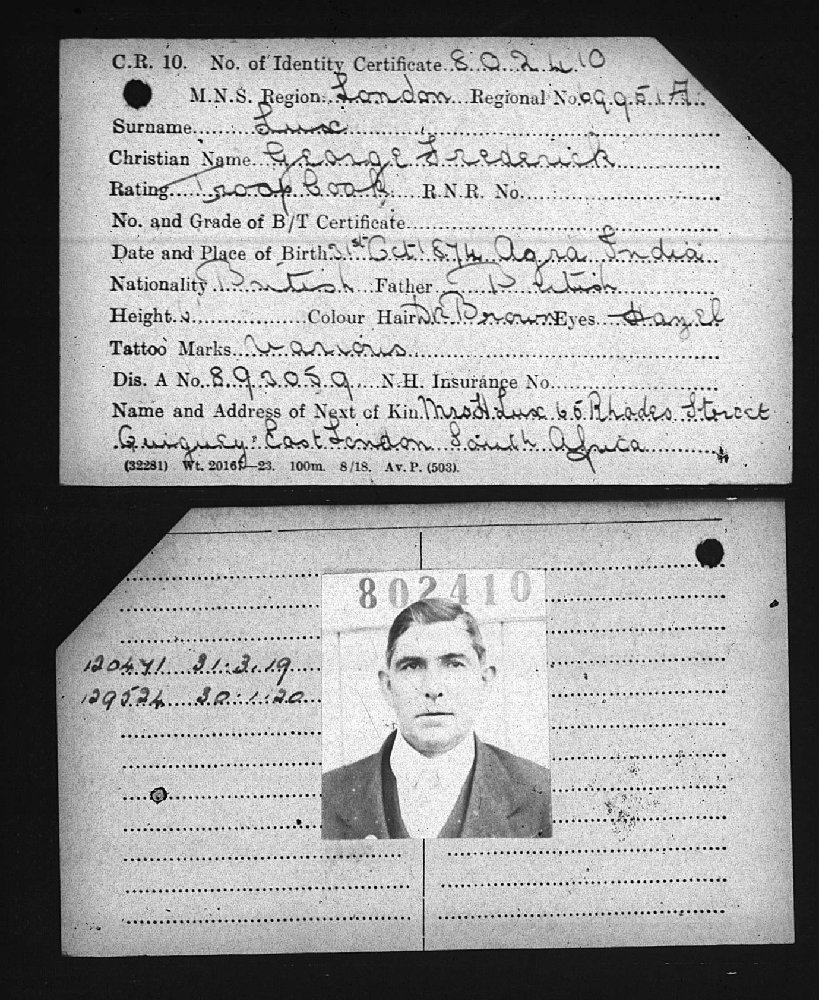 C.R. 10. No. of Identity Certificate 802410
M.N.S. Region London Regional No. 09951 A
Surname Lux
Christian Name George Frederick
Rating Troop Cook R.N.R. No.
No. and Grade of B/T Certificate
Date and Place of Birth 21st Oct 1874 Agra India
Nationality British Father British
Height Colour Hair Dk Brown Eyes Hazel
Tattoo Marks Various
Dis. A No. 893059 N.H. Insurance No.
Name and Address of Next of Kin Mrs H. Lux 65 Rhodes Street
Quigney East London South Africa
(32281) Wt. 20165—23. 100m. 8/18. Av. P. (503).
802410
120471 31.3.19
129524 30.1.20